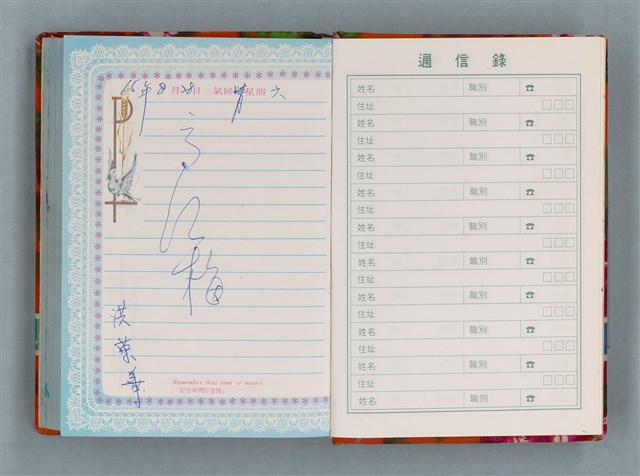 65年8月28日 氣候晴星期六
梅
洪榮華
Remember that time is money.
記住時間即金錢。
通信錄
姓名 職別 ☎
住址 □□□
姓名 職別 ☎
住址 □□□
姓名 職別 ☎
住址 □□□
姓名 職別 ☎
住址 □□□
姓名 職別 ☎
住址 □□□
姓名 職別 ☎
住址 □□□
姓名 職別 ☎
住址 □□□
姓名 職別 ☎
住址 □□□
姓名 職別 ☎
住址 □□□
姓名 職別 ☎